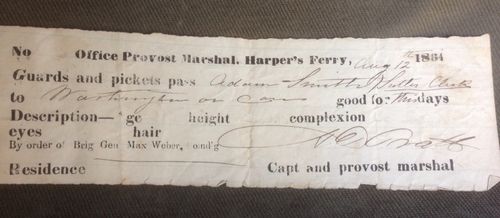 No Office Provost Marshal, Harper's Ferry, Aug 12th 1864
Guards and pickets pass Adam Smith & Sutler Clerk
to Washington on Cars good for this days
Description— ge height complexion
eyes hair
By order of Brig Gen Max Weber, omd'g
Residence Capt and provost marshal